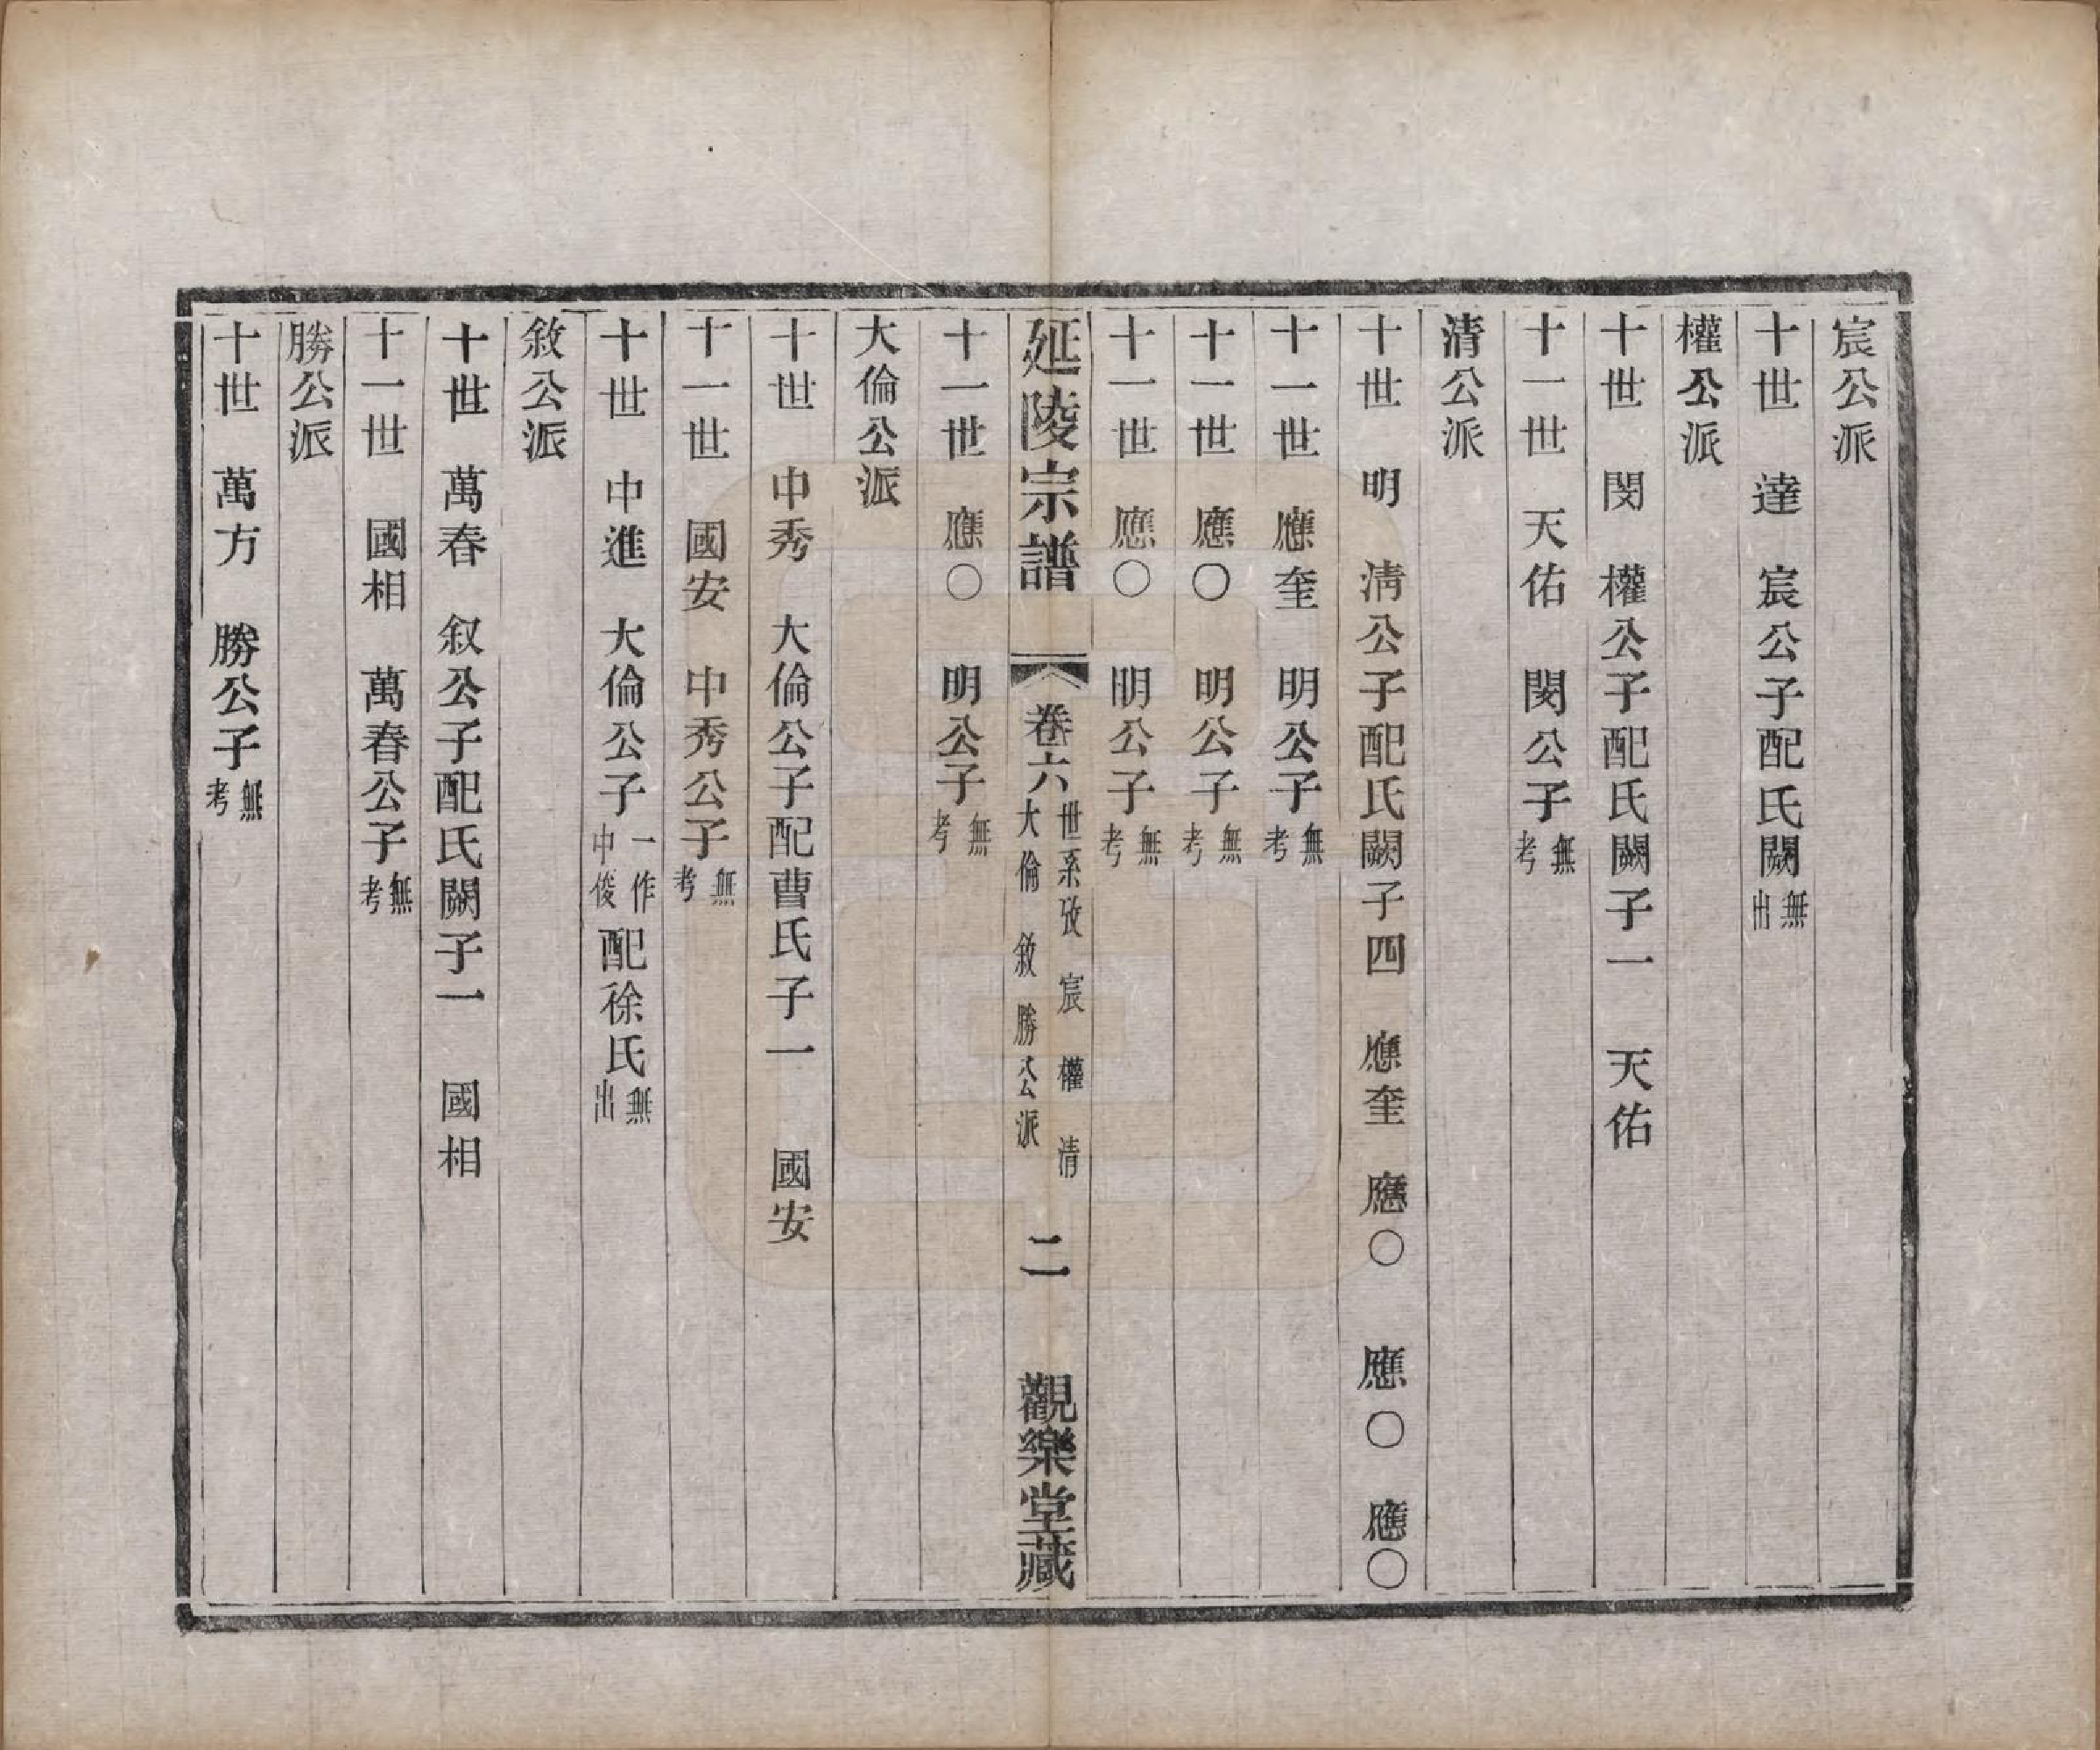 宸公派
十世　達　宸公子配氏闕無出
權公派
十世　閔　權公子配氏闕子一　天佑
十一世　天佑　閔公子無考
清公派
十世　明　清公子配氏闕子四　應奎　應〇　應〇　應〇
十一世　應奎　明公子無考
十一世　應〇　明公子無考
十一世　應〇　明公子無考
延陵宗譜　卷六　世系攷　宸　權　清　大倫　敘　勝公派　二　觀樂堂藏
十一世　應〇　明公子無考
大倫公派
十世　中秀　大倫公子配曹氏子一　國安
十一世　國安　中秀公子無考
十世　中進　大倫公子一作中俊配徐氏無出
敘公派
十世　萬春　叙公子配氏闕子一　國相
十一世　國相　萬春公子無考
勝公派
十世　萬方　勝公子無考